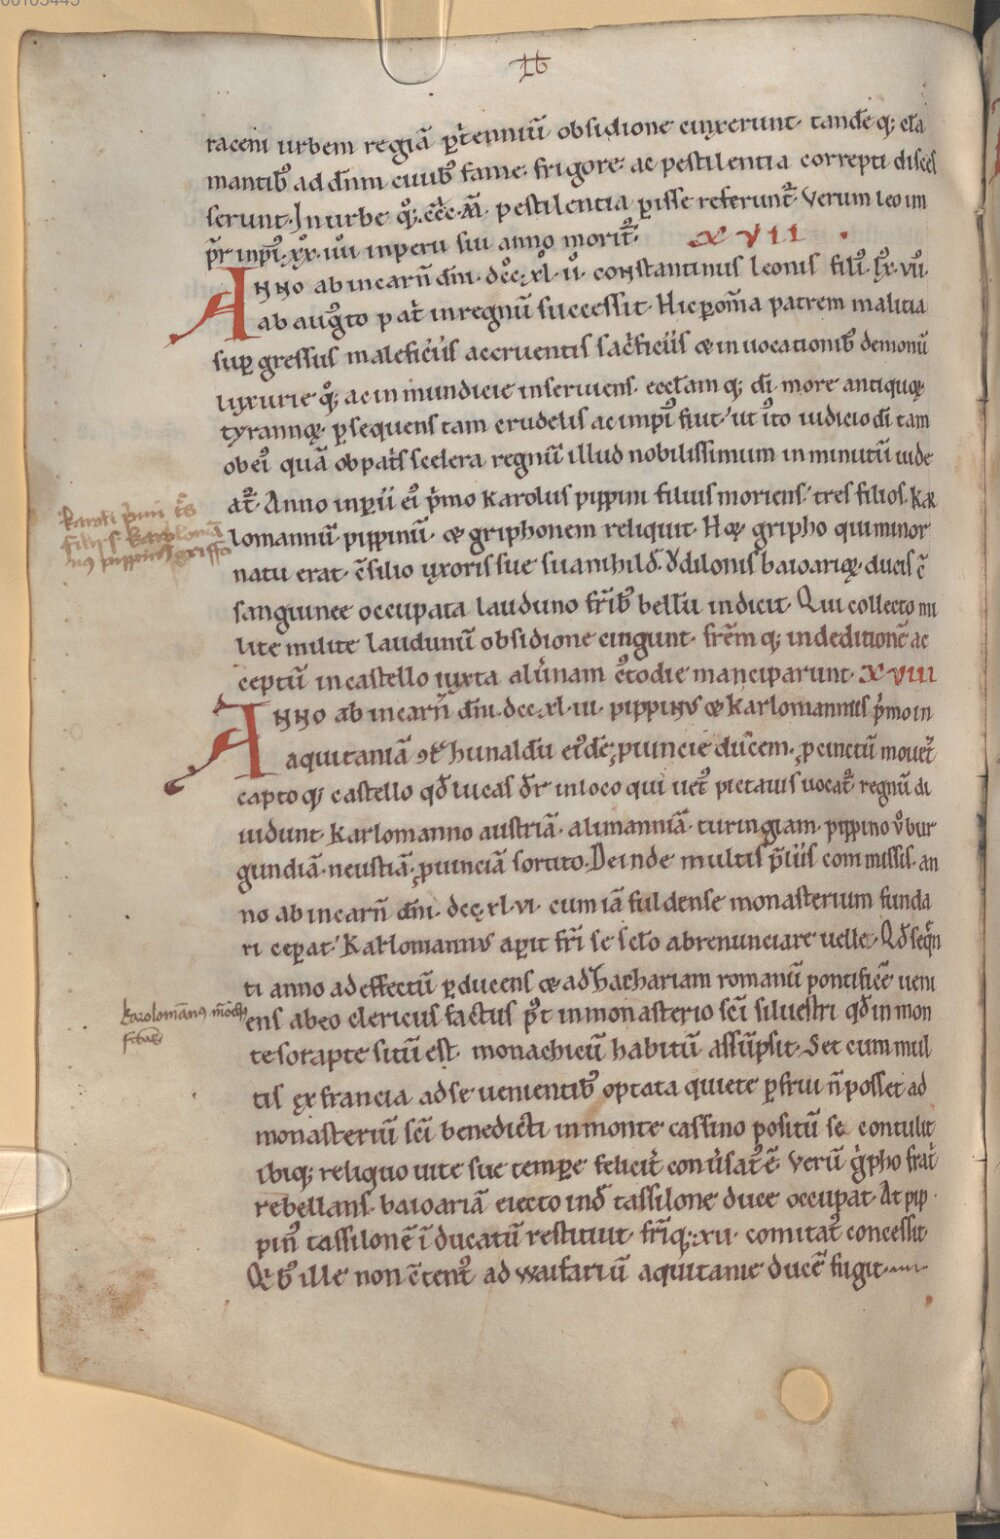 16
raceni urbem regiā p̄ t̓enniū obsidione cinxerunt. tandē q; cla
mantibꝰ ad dn̄m civibꝰ fame. frigore. ac pestilentia correpti disces
serunt. In urbe qͦ; ccc. m̄. pestilentia perisse referuntᷣ. Verum leo im
pr̄ inpīi. xx. uͦu inperii sui anno moritᷣ. XVII
Anno ab incarn̄ dn̄i. dcͦc. xlͦ. uͦ. constantinus leonis filiꝰ. lͦx. vuͦ.
ab augͦto p at̓ in regnū successit. Hic ꝑ om̄a patrem malitia
suꝑ gressus maleficiis ac cruentis sac̓ficiis & in uocationibꝰ demonū
luxurie qͦ; ac in mundicie inserviens. eccl̄am q; dī. more antiquoꝝ
tyrannoꝝ ꝑsequens tam crudelis ac impiꝰ fuit. ut iͦto iudicio dī tam
ob eiꝰ quā ob pat̓s scelera regnū illud nobilissimum in minutū uide
atᷣ. Anno inperii eiꝰ p̓mo Karolus pippini filius moriens. tres filios. Kar
lomannū. pippinū. & griphonem reliquit. Hoꝝ gripho qui minor
natu erat. c̄silio uxoris sue suanihild. Odilonis baioarioꝝ. ducis c̄
sanguinee occupata lauduno fr̄ibꝰ bellū indicit. Qui collecto mi
lite milite laudunū obsidione cingunt. fr̄em q; in deditionē ac
ceptū in castello iuxta alu̓nam cꝰtodie manciparunt. XVIII
Anno ab incarn̄ dn̄i. dcc. xl. iii. pippinus & karlomannus p̓mo in
aquitaniā 9t̓ hunaldū eiꝰdē ꝓuincie ducem. ꝓcinctū mouetᷣ
capto q; castello qd̄ lucas dr̄ in loco qui uetꝰ pictauis uocatᷣ. regnū di
uidunt. Karlomanno austriā. alimanniā. turingiam. pippino uͦ bur
gundiā. neustiā. ꝓuinciā sortito. Deinde multis p̄liis commissis. an
no ab incarn̄ dn̄i. dcc. xl. vi. cum iā fuldense monasterium funda
ri ceperat. Karlomannus aperit fr̄i se sclo abrenunciare uelle. Qd̄ seqn̄
ti anno ad effectū ꝑducens & ad hachariam romanū pontificē ueni
ens ab eo clericus factus pꝰt in monasterio sci siluestri qd̄ in mon
te sorapte sitū est. monachicū habitū assūpsit. Set cum mul
tis ex francia ad se uenientibꝰ optata quiete ꝑfrui n̄ posset ad
monasteriū sci benedicti in monte cassino positū se contulit
ibiq; reliquo uite sue tempore felicit̓ conu̓satꝰ ē. Verū g̓pho frat̓
rebellans. baioariā eiecto ind̄ tassilone duce occupat. At pip
pinꝰ tassilonē ī ducatū restituit. fr̄iq; xii. comitatꝰ concessit
Qͥbꝰ ille non c̄tentꝰ ad waifariū aquitanie ducē fugit.
karoli p̓mi tͤs
filij s. karoloman
nꝰ pippinꝰ griffo
karolomānꝰ mōchꝰ